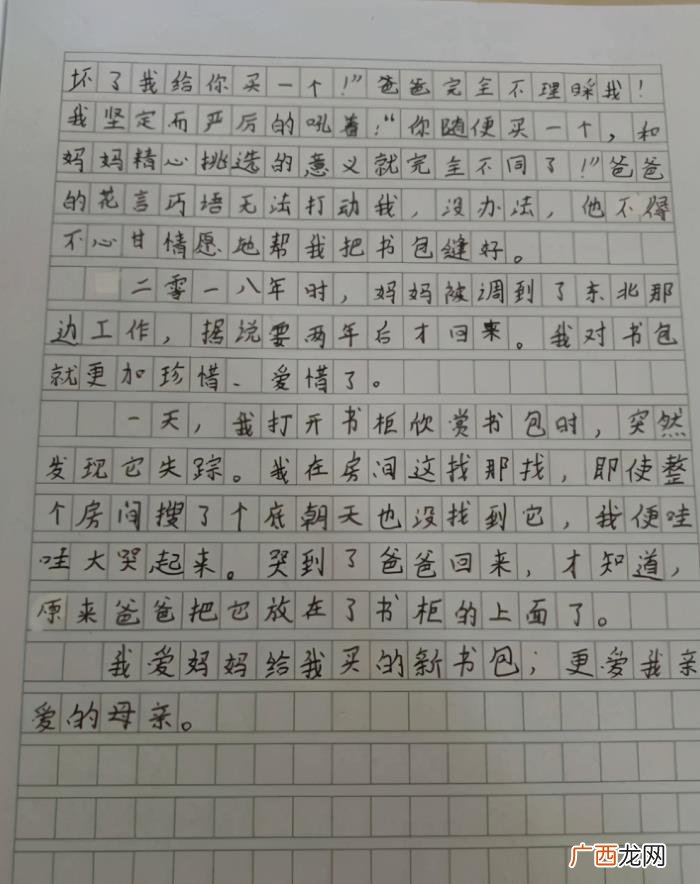 坏了我给你买一个！”爸爸完全不理睬我！
我坚定而严厉的吼着：“你随便买一个，和
妈妈精心挑选的意义就完全不同了！”爸爸
的花言巧语无法打动我，没办法，他不得
不心甘情愿地帮我把书包缝好。
二零一八年时，妈妈被调到了东北那
边工作，据说要两年后才回来。我对书包
就更加珍惜、爱惜了。
一天，我打开书柜欣赏书包时，突然
发现它失踪。我在房间这找那找，即使整
个房间搜了个底朝天也没找到它，我便哇
哇大哭起来。哭到了爸爸回来，才知道，
原来爸爸把它放在了书柜的上面了。
我爱妈妈给我买的新书包；更爱我亲
爱的母亲。
广西龙网